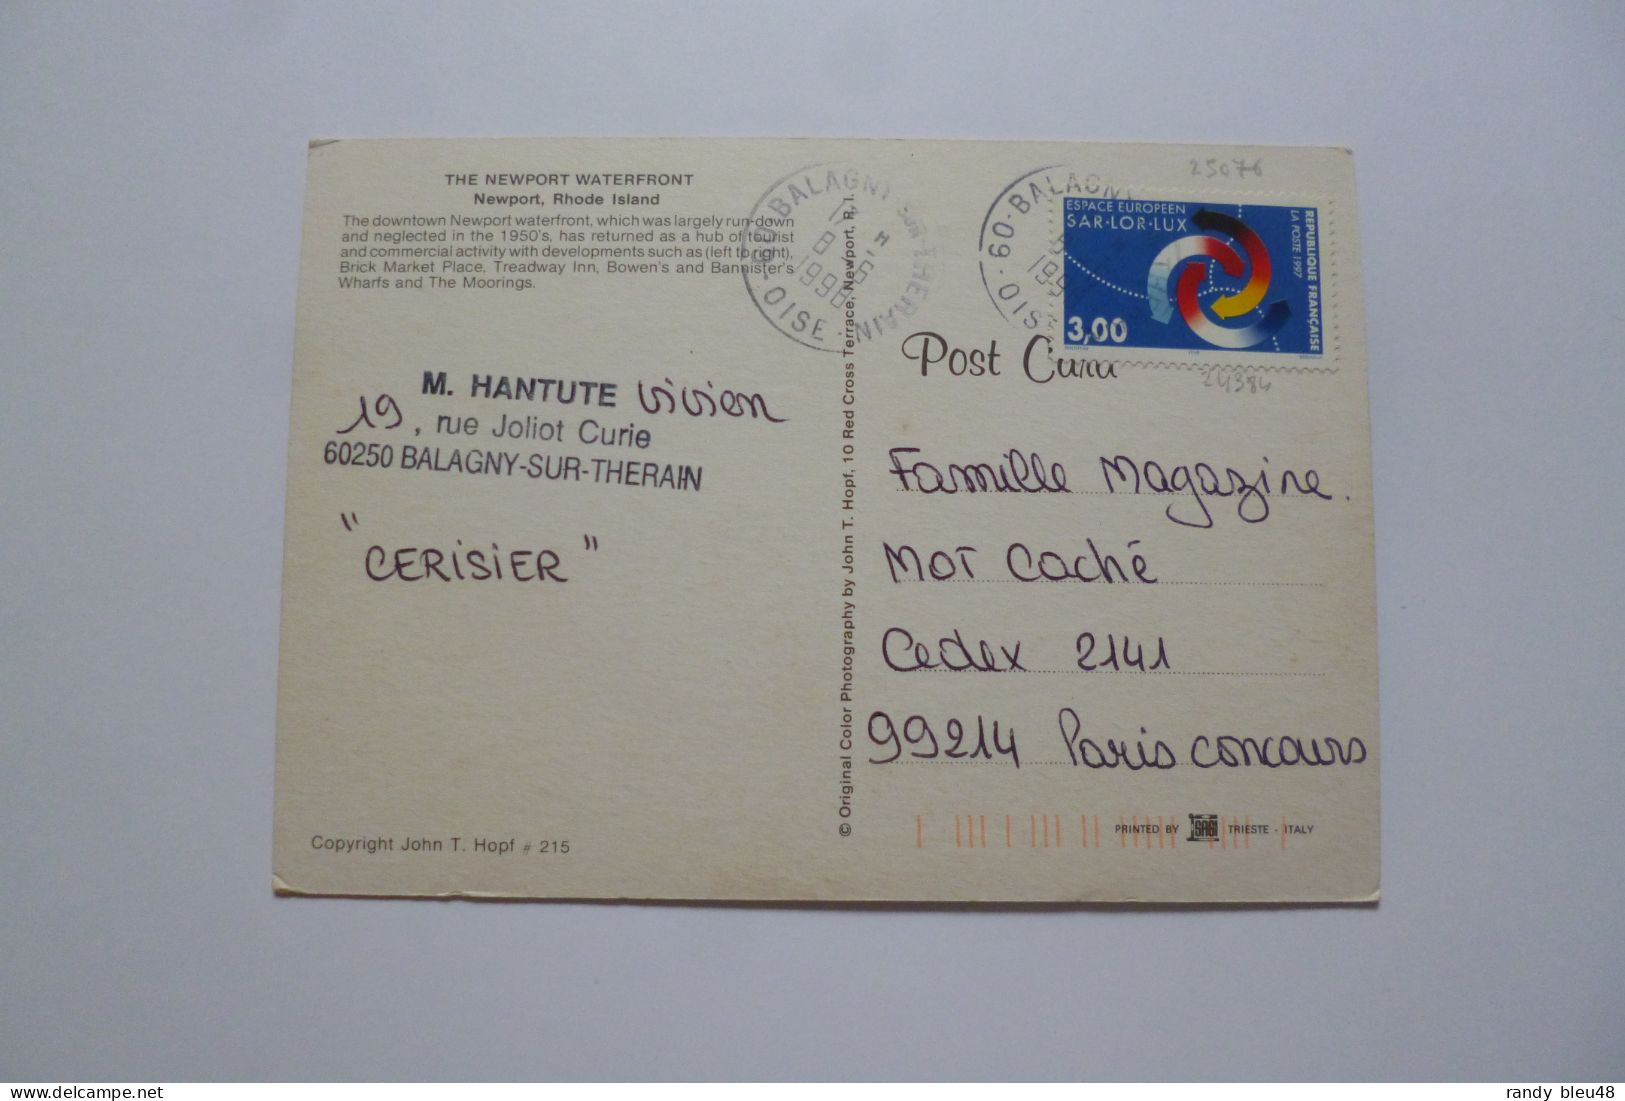 THE NEWPORT WATERFRONT
Newport, Rhode Island
The downtown Newport waterfront, which was largely run-down
and neglected in the 1950's, has returned as a hub of tourist
and commercial activity with developments such as (left to right),
Brick Market Place, Treadway Inn, Bowen's and Bannister's
Wharfs and The Moorings.
M. HANTUTE Vivien
19, rue Joliot Curie
60250 BALAGNY-SUR-THERAIN
"CERISIER"
Copyright John T. Hopf # 215
© Original Color Photography by John T. Hopf, 10 Red Cross Terrace, Newport, R.I.
60-BALAGNY SUR THERAIN
1998
OISE
60-BALAGNY
OISE
25076
ESPACE EUROPEEN
SAR-LOR-LUX
REPUBLIQUE FRANÇAISE
LA POSTE 1997
3,00
24384
Post Card
Famille Magazine.
MOT Caché
Cedex 2141
99214 Paris concours
PRINTED BY SAGI TRIESTE - ITALY
randy bleu48